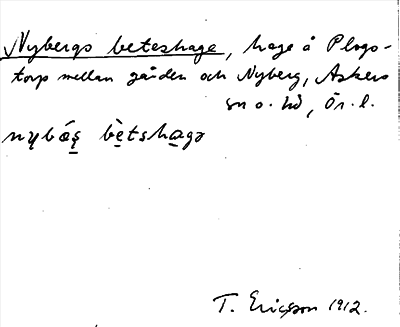 Nybergs beteshage, hage å Plogs-
torp mellan gården och Nyberg, Askers
sn o. hd, Ör. l.
nybæ̀s̱ bètshagə
T. Ericson 1912.